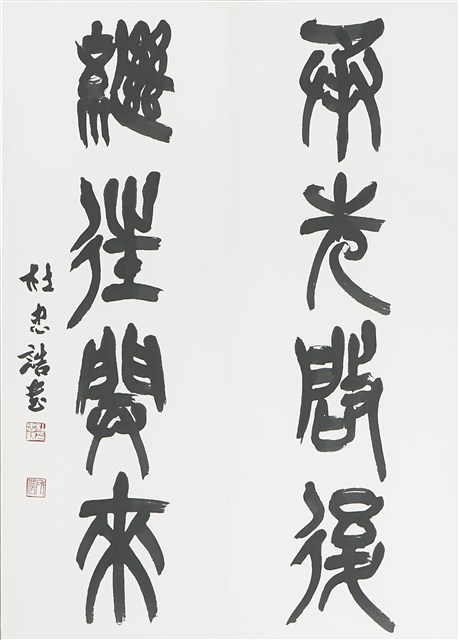 承先啟後
繼往開來
杜忠誥書